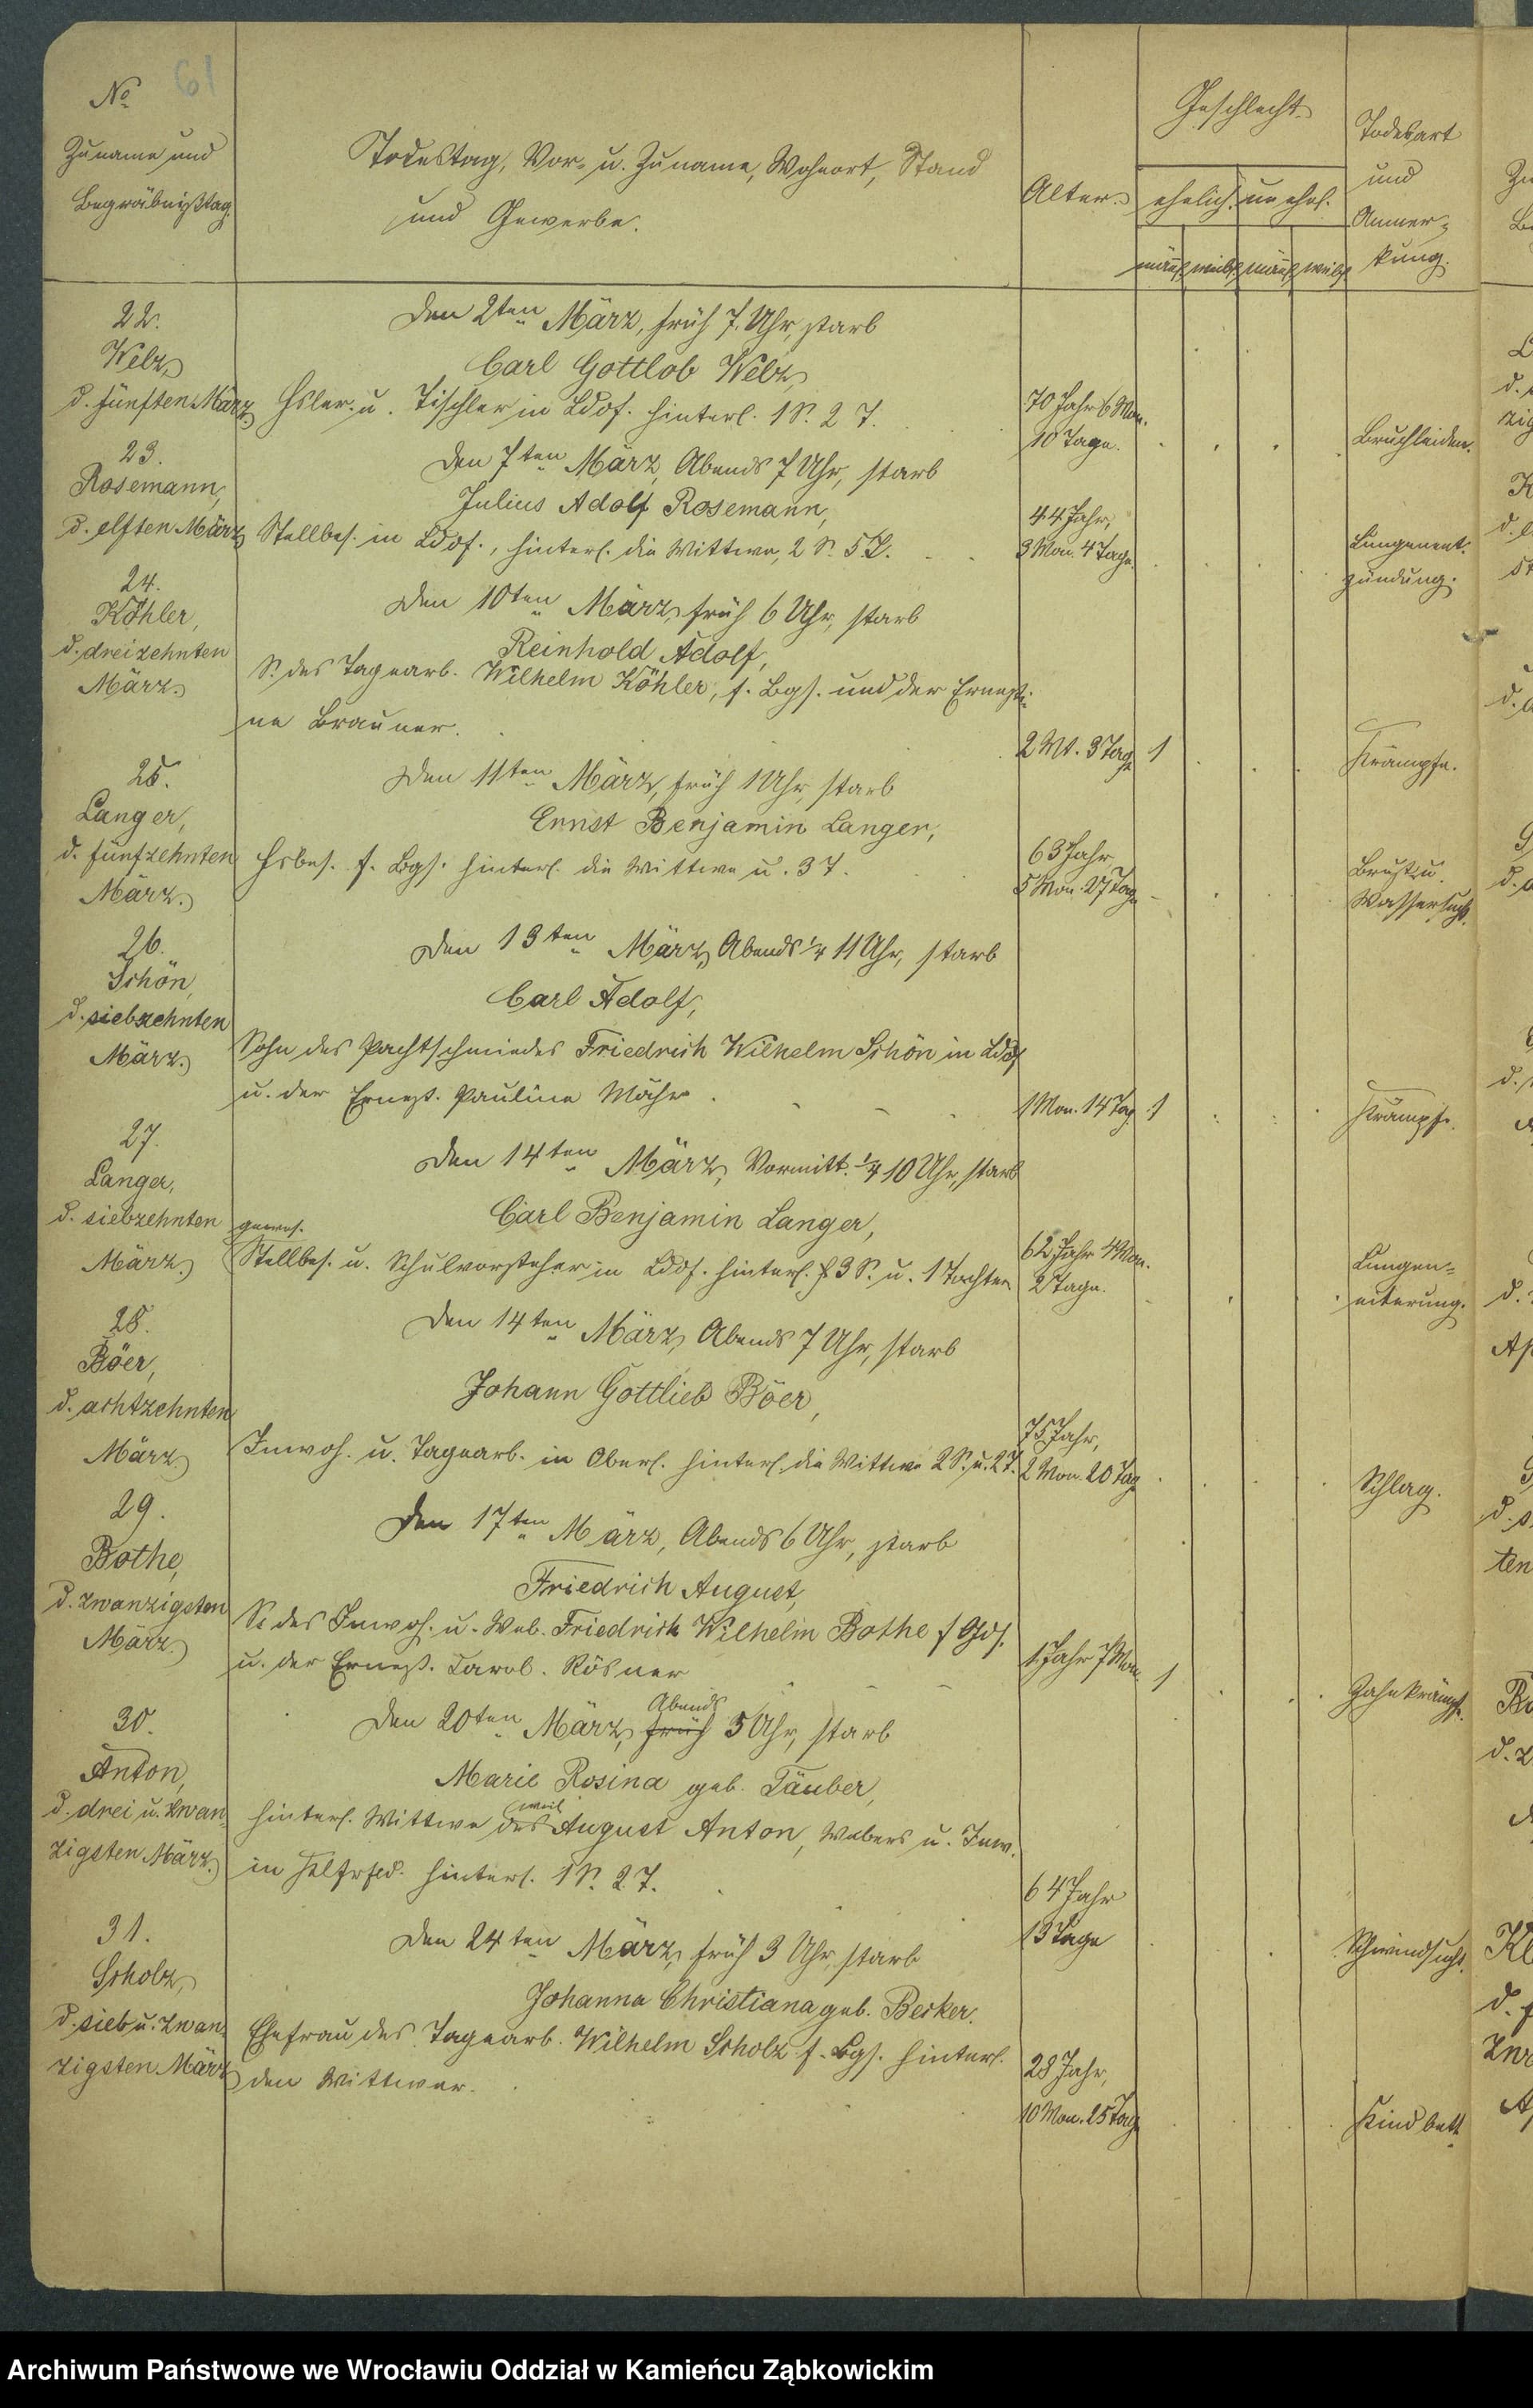 61
No
Zuname und
Begräbnißtag.
Todestag, Vor- u. Zuname, Wohnort, Stand
und Gewerbe.
Alter.
Geschlecht.
ehelich. unehel.
männl weibl männl weibl
Todesart
und
Anmer-
kung.
22.
Welz,
d. fünften März
Den 2ten März, früh 7. Uhr, starb
Carl Gottlob Welz,
Hsler. u. Tischler in Ldof. hinterl. 1 S. 2 T.
70 Jahr 6 Mon.
10 Tage.
Bruchleiden.
23.
Rosemann,
d. elften März
Den 7ten März, Abends 7 Uhr, starb
Julius Adolf Rosemann,
Stellbes. in Ldof., hinterl. die Wittwe, 2 S. 5 T.
44 Jahr,
3 Mon. 4 Tage.
Lungenent-
zündung.
24.
Köhler,
d. dreizehnten
März.
Den 10ten März, früh 6 Uhr, starb
Reinhold Adolf,
S. des Tagearb. Wilhelm Köhler, f. Bgs. und der Ernesti-
ne Brauner.
2 Mt. 3 Tage 1
Krämpfe.
25.
Langer,
d. fünfzehnten
März.
Den 11ten März, früh 1 Uhr, starb
Ernst Benjamin Langer,
Hsbes. f. Bgs. hinterl. die Wittwe u. 3 T.
63 Jahr
5 Mon. 27 Tage
Brust u.
Wassersucht.
26.
Schön,
d. siebzehnten
März.
Den 13ten März, Abends 1/4 11 Uhr, starb
Carl Adolf,
Sohn des Pachtschmiedes Friedrich Wilhelm Schön in Ldof
u. der Ernest. Pauline Mohr.
1 Mon. 14 Tag. 1
Krämpfe.
27.
Langer,
d. siebzehnten
März.
Den 14ten März, Vormitt. 1/4 10 Uhr, starb
Carl Benjamin Langer,
gewes.
Stellbes. u. Schulvorsteher in Ldof. hinterl. 3 S. u. 1 Tochter
62 Jahr 4 Mon.
2 Tage.
Lungen-
eiterung.
28.
Böer,
d. achtzehnten
März
Den 14ten März, Abends 7 Uhr, starb
Johann Gottlieb Böer,
Inwoh. u. Tagearb. in Oberl. hinterl. die Wittwe 2 S. u. 2 T.
75 Jahr,
2 Mon. 20 Tag
Schlag.
29.
Bothe,
d. zwanzigsten
März.
Den 17ten März, Abends 6 Uhr, starb
Friedrich August,
S. des Inwoh. u. Web. Friedrich Wilhelm Bothe f Gds.
u. der Ernest. Carol. Rösner
1 Jahr 7 Mon. 1
Zahnkrämpfe.
30.
Anton,
d. drei u. zwan-
zigsten März.
Abends
Den 20ten März, früh 5 Uhr, starb
Marie Rosina geb. Täuber,
weil
hinterl. Wittwe des August Anton, Webers u. Inw.
in hinterl. 1 S. 2 T.
64 Jahr
13 Tage
Schwindsucht.
31.
Scholz,
d. sieb u. zwan-
zigsten März
Den 24ten März, früh 3 Uhr, starb
Johanna Christiana geb. Becker.
Ehefrau des Tagearb. Wilhelm Scholz f. Bgs. hinterl.
den Wittwer.
28 Jahr,
10 Mon. 25 Tage
Kindbett
Archiwum Państwowe we Wrocławiu Oddział w Kamieńcu Ząbkowickim